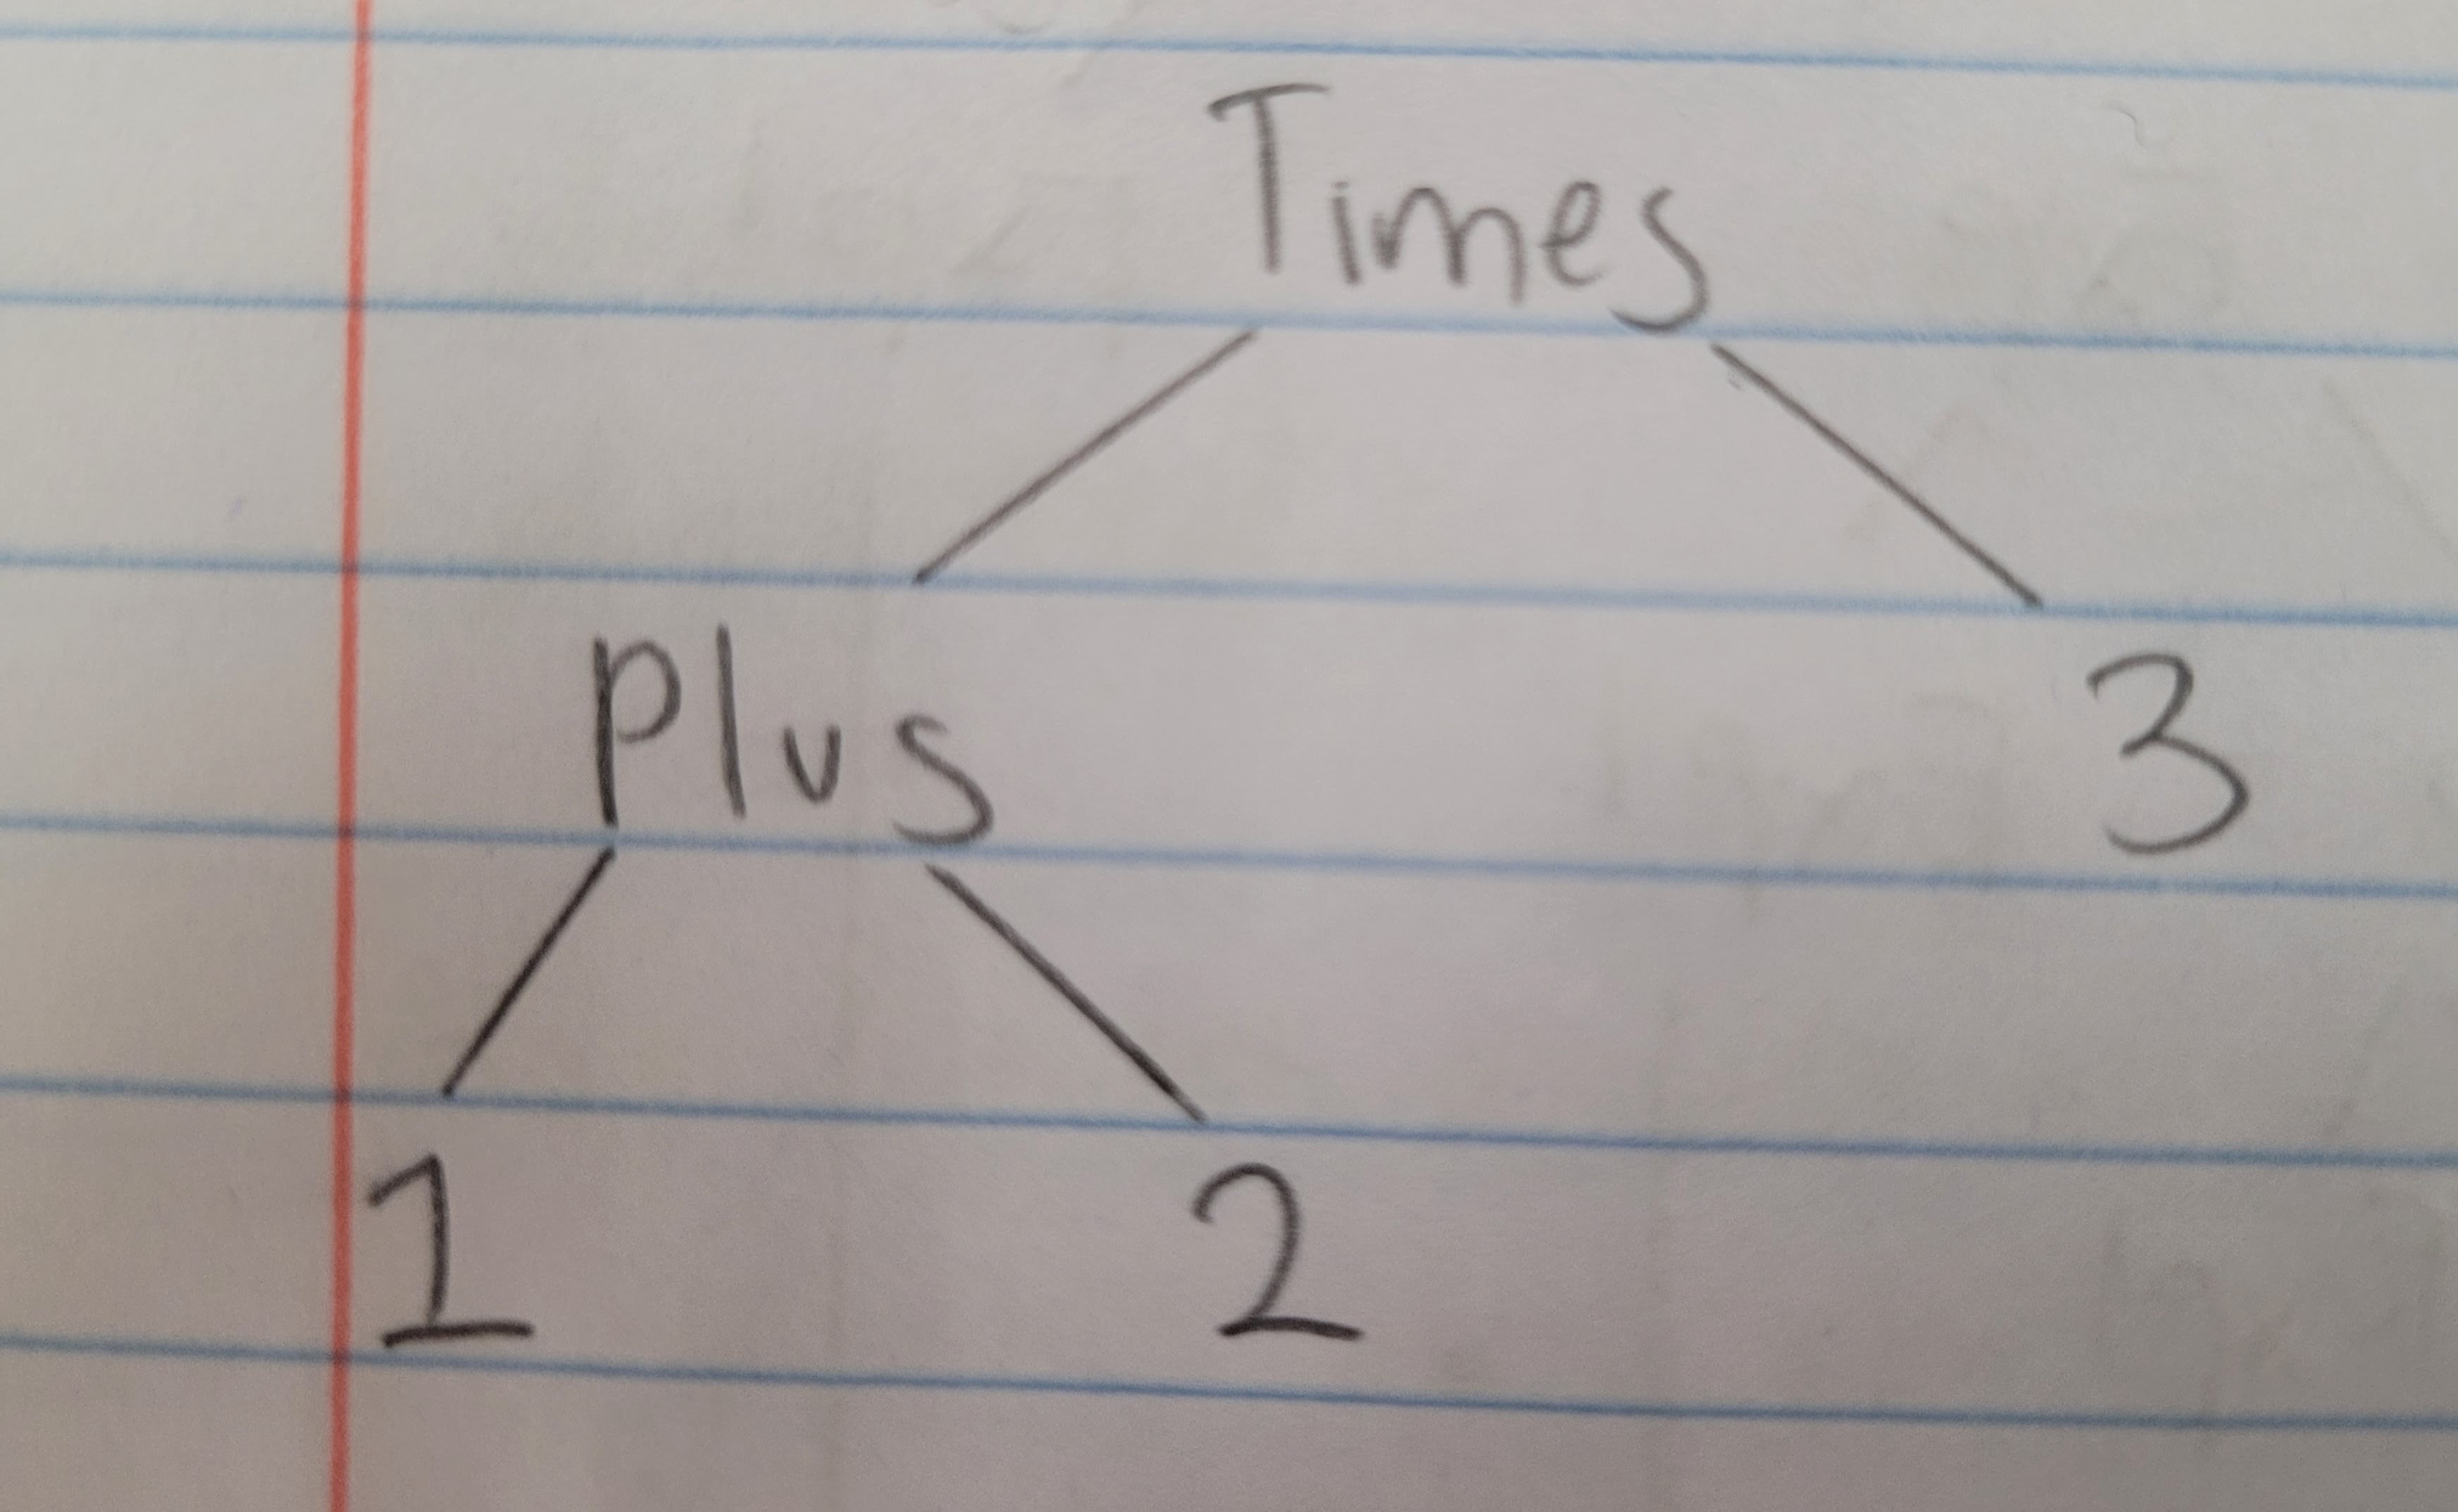 Times
Plus 3
1 2